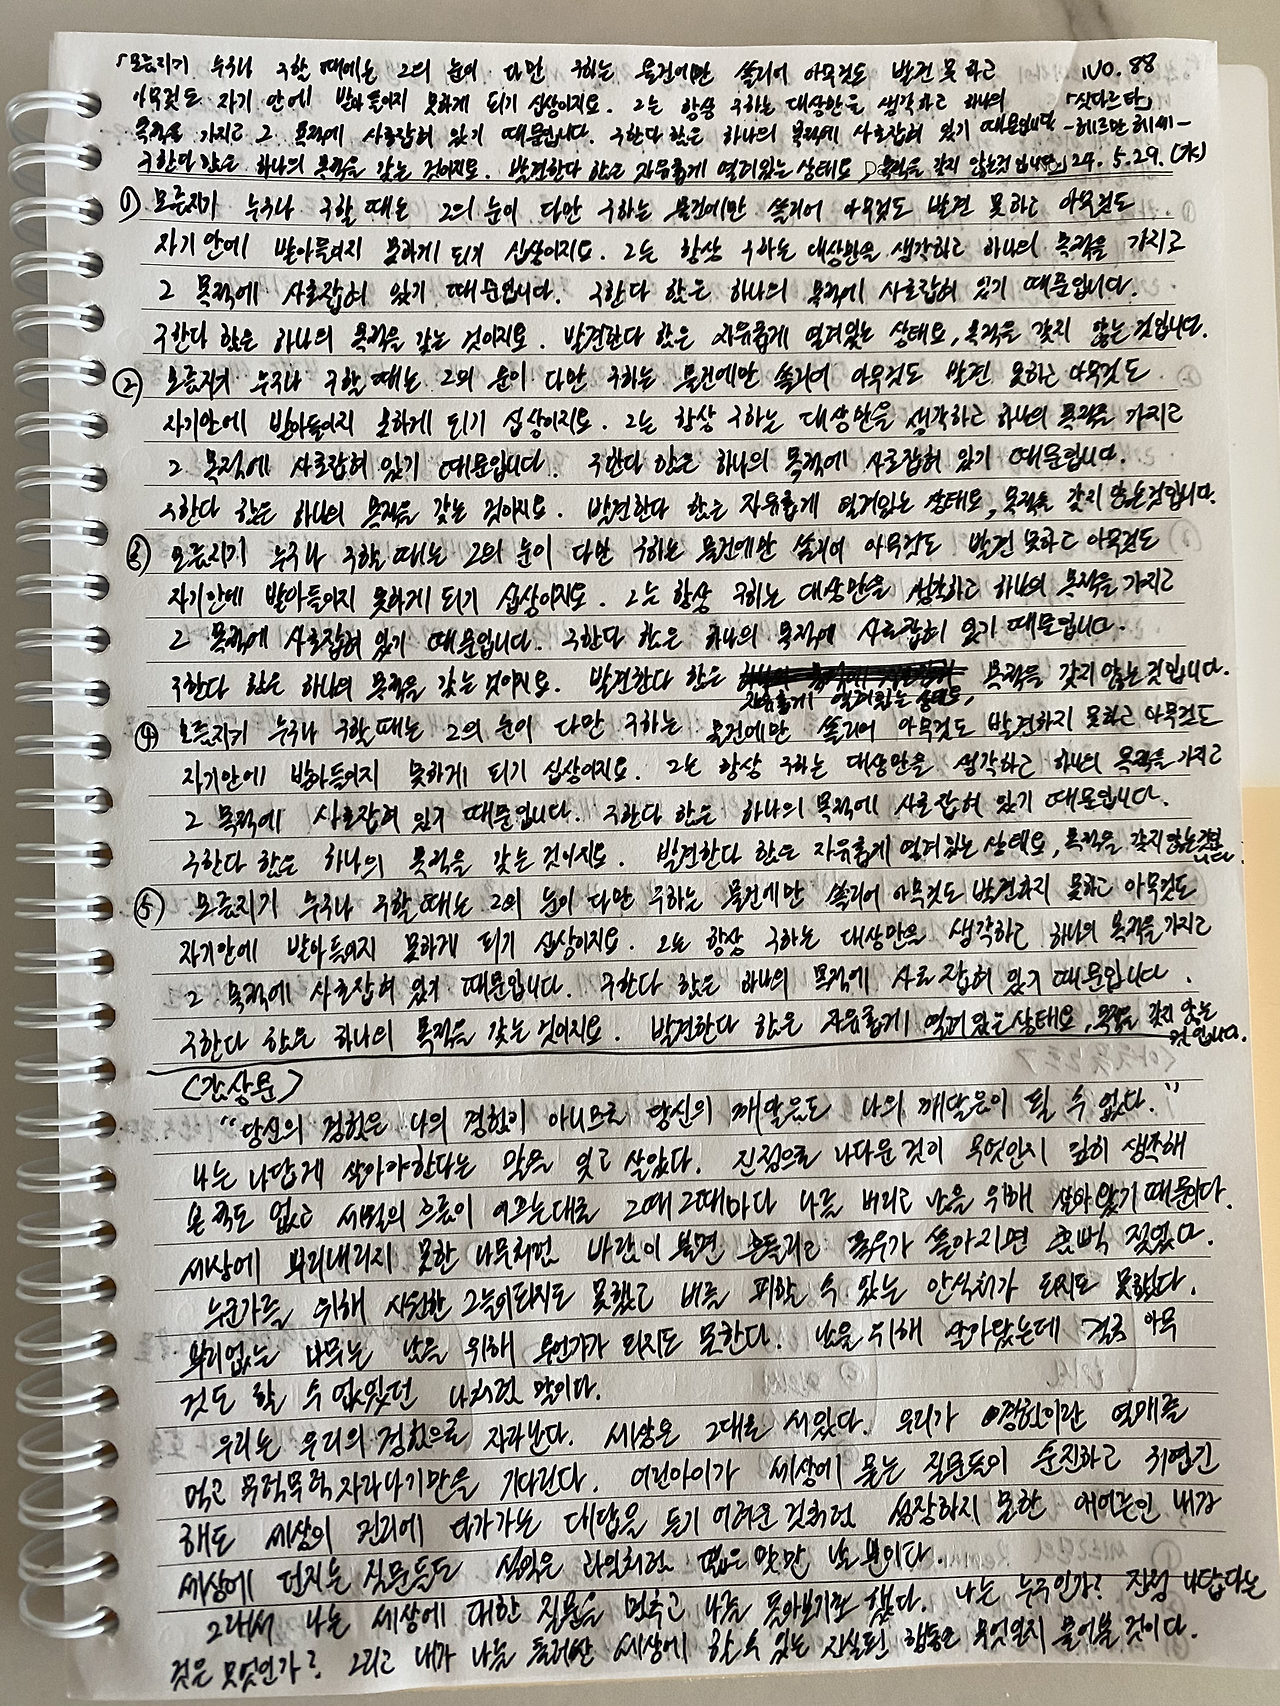 「모름지기 누구나 구할 때에는 그의 눈이 다만 구하는 물건에만 쏠리어 아무것도 발견 못 하고 NO. 88
아무것도 자기 안에 받아들이지 못하게 되기 십상이지요. 그는 항상 구하는 대상만을 생각하고 하나의 「싯다르타」
목적을 가지고 그 목적에 사로잡혀 있기 때문입니다. 구한다 함은 하나의 목적에 사로잡혀 있기 때문입니다 -헤르만 헤세-
구한다 함은 하나의 목적을 갖는 것이지요. 발견한다 함은 자유롭게 열려있는 상태요, 목적을 갖지 않는것입니다」 24. 5. 29. (수)
① 모름지기 누구나 구할 때는 그의 눈이 다만 구하는 물건에만 쏠리어 아무것도 발견 못하고 아무것도
자기안에 받아들이지 못하게 되기 십상이지요. 그는 항상 구하는 대상만을 생각하고 하나의 목적을 가지고
그 목적에 사로잡혀 있기 때문입니다. 구한다 함은 하나의 목적에 사로잡혀 있기 때문입니다.
구한다 함은 하나의 목적을 갖는 것이지요. 발견한다 함은 자유롭게 열려있는 상태요, 목적을 갖지 않는것입니다.
② 모름지기 누구나 구할 때는 그의 눈이 다만 구하는 물건에만 쏠리어 아무것도 발견 못하고 아무것도
자기안에 받아들이지 못하게 되기 십상이지요. 그는 항상 구하는 대상만을 생각하고 하나의 목적을 가지고
그 목적에 사로잡혀 있기 때문입니다. 구한다 함은 하나의 목적에 사로잡혀 있기 때문입니다.
구한다 함은 하나의 목적을 갖는 것이지요. 발견한다 함은 자유롭게 열려있는 상태요, 목적을 갖지 않는것입니다.
③ 모름지기 누구나 구할 때는 그의 눈이 다만 구하는 물건에만 쏠리어 아무것도 발견 못하고 아무것도
자기안에 받아들이지 못하게 되기 십상이지요. 그는 항상 구하는 대상만을 생각하고 하나의 목적을 가지고
그 목적에 사로잡혀 있기 때문입니다. 구한다 함은 하나의 목적에 사로잡혀 있기 때문입니다.
구한다 함은 하나의 목적을 갖는 것이지요. 발견한다 함은 목적을 갖지 않는것입니다.
자유롭게 열려있는 상태요,
④ 모름지기 누구나 구할 때는 그의 눈이 다만 구하는 물건에만 쏠리어 아무것도 발견하지 못하고 아무것도
자기안에 받아들이지 못하게 되기 십상이지요. 그는 항상 구하는 대상만을 생각하고 하나의 목적을 가지고
그 목적에 사로잡혀 있기 때문입니다. 구한다 함은 하나의 목적에 사로잡혀 있기 때문입니다.
구한다 함은 하나의 목적을 갖는 것이지요. 발견한다 함은 자유롭게 열려있는 상태요, 목적을 갖지 않는것입
니다.
⑤ 모름지기 누구나 구할 때는 그의 눈이 다만 구하는 물건에만 쏠리어 아무것도 발견하지 못하고 아무것도
자기안에 받아들이지 못하게 되기 십상이지요. 그는 항상 구하는 대상만을 생각하고 하나의 목적을 가지고
그 목적에 사로잡혀 있기 때문입니다. 구한다 함은 하나의 목적에 사로잡혀 있기 때문입니다.
구한다 함은 하나의 목적을 갖는 것이지요. 발견한다 함은 자유롭게 열려있는 상태요, 목적을 갖지 않는
것입니다.
<감상문>
"당신의 경험은 나의 경험이 아니므로 당신의 깨달음도 나의 깨달음이 될 수 없다."
나는 나답게 살아야한다는 말을 잊고 살았다. 진정으로 나다운 것이 무엇인지 깊히 생각해
본 적도 없고 세월의 흐름이 이끄는대로 그때그때마다 나를 버리고 남을 위해 살아왔기 때문이다.
세상에 뿌리내리지 못한 나무처럼 바람이 불면 흔들리고 폭우가 쏟아지면 흠뻑 젖었다.
누군가를 위해 시원한 그늘이되지도 못했고 비를 피할 수 있는 안식처가 되지도 못했다.
뿌리없는 나무는 남을 위해 무언가가 되지도 못한다. 남을 위해 살아왔는데 결국 아무
것도 할 수 없었던 나처럼 말이다.
우리는 우리의 경험으로 자라난다. 세상은 그대로 서있다. 우리가 경험이란 열매를
먹고 무럭무럭 자라나기만을 기다린다. 어린아이가 세상에 묻는 질문들이 순진하고 귀엽긴
해도 세상의 진리에 다가가는 대답을 듣기 어려운 것처럼 성장하지 못한 애어른인 내가
세상에 던지는 질문들도 설익은 과일처럼 떫은 맛만 날 뿐이다.
그래서 나는 세상에 대한 질문을 멈추고 나를 돌아보기로 했다. 나는 누구인가? 진정 나답다는
것은 무엇인가? 그리고 내가 나를 둘러싼 세상에 할 수 있는 진실된 행동은 무엇인지 물어볼 것이다.